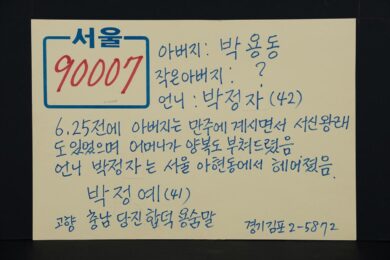 서울
90007
아버지: 박용동
작은아버지: ?
언니: 박정자 (42)
6.25전에 아버지는 만주에 계시면서 서신왕래
도 있었으며 어머니가 양복도 부쳐드렸음
언니 박정자는 서울 아현동에서 헤어졌음.
박정예 (41)
고향 충남 당진 합덕 용숨말
경기김포 2-5872